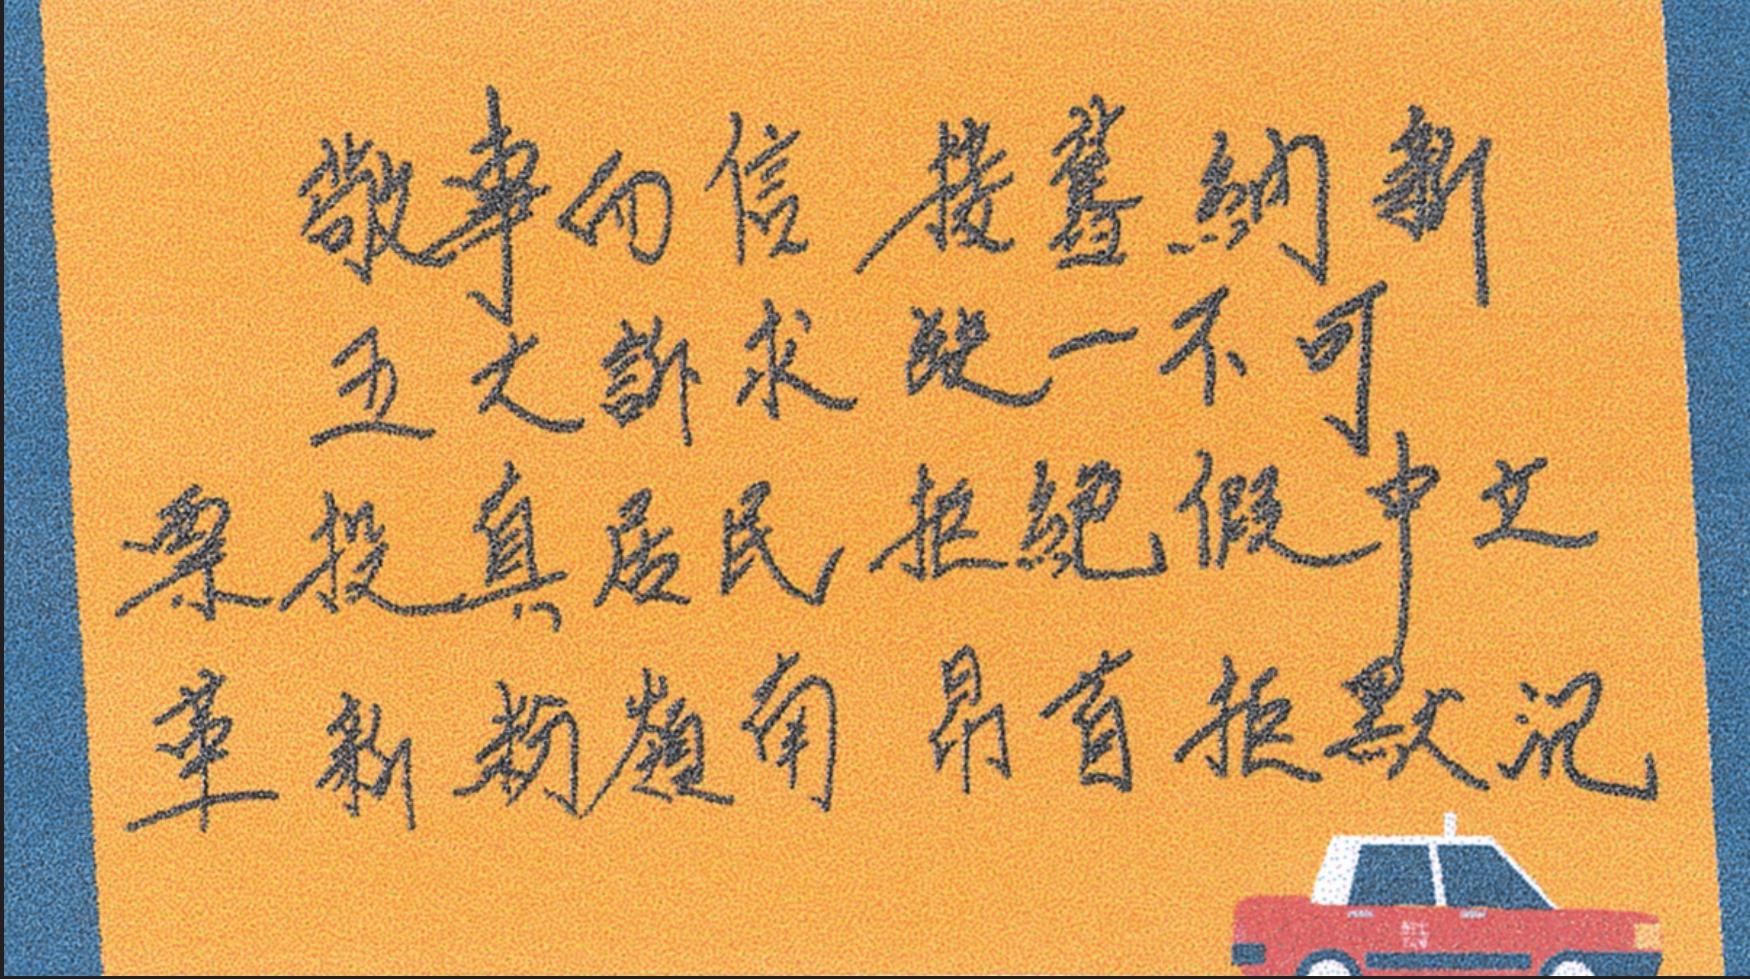 敬事勿信 接舊納新
五大訴求 缺一不可
票投真居民 拒絕假中文
革新勑嶺南 昂首拒默記